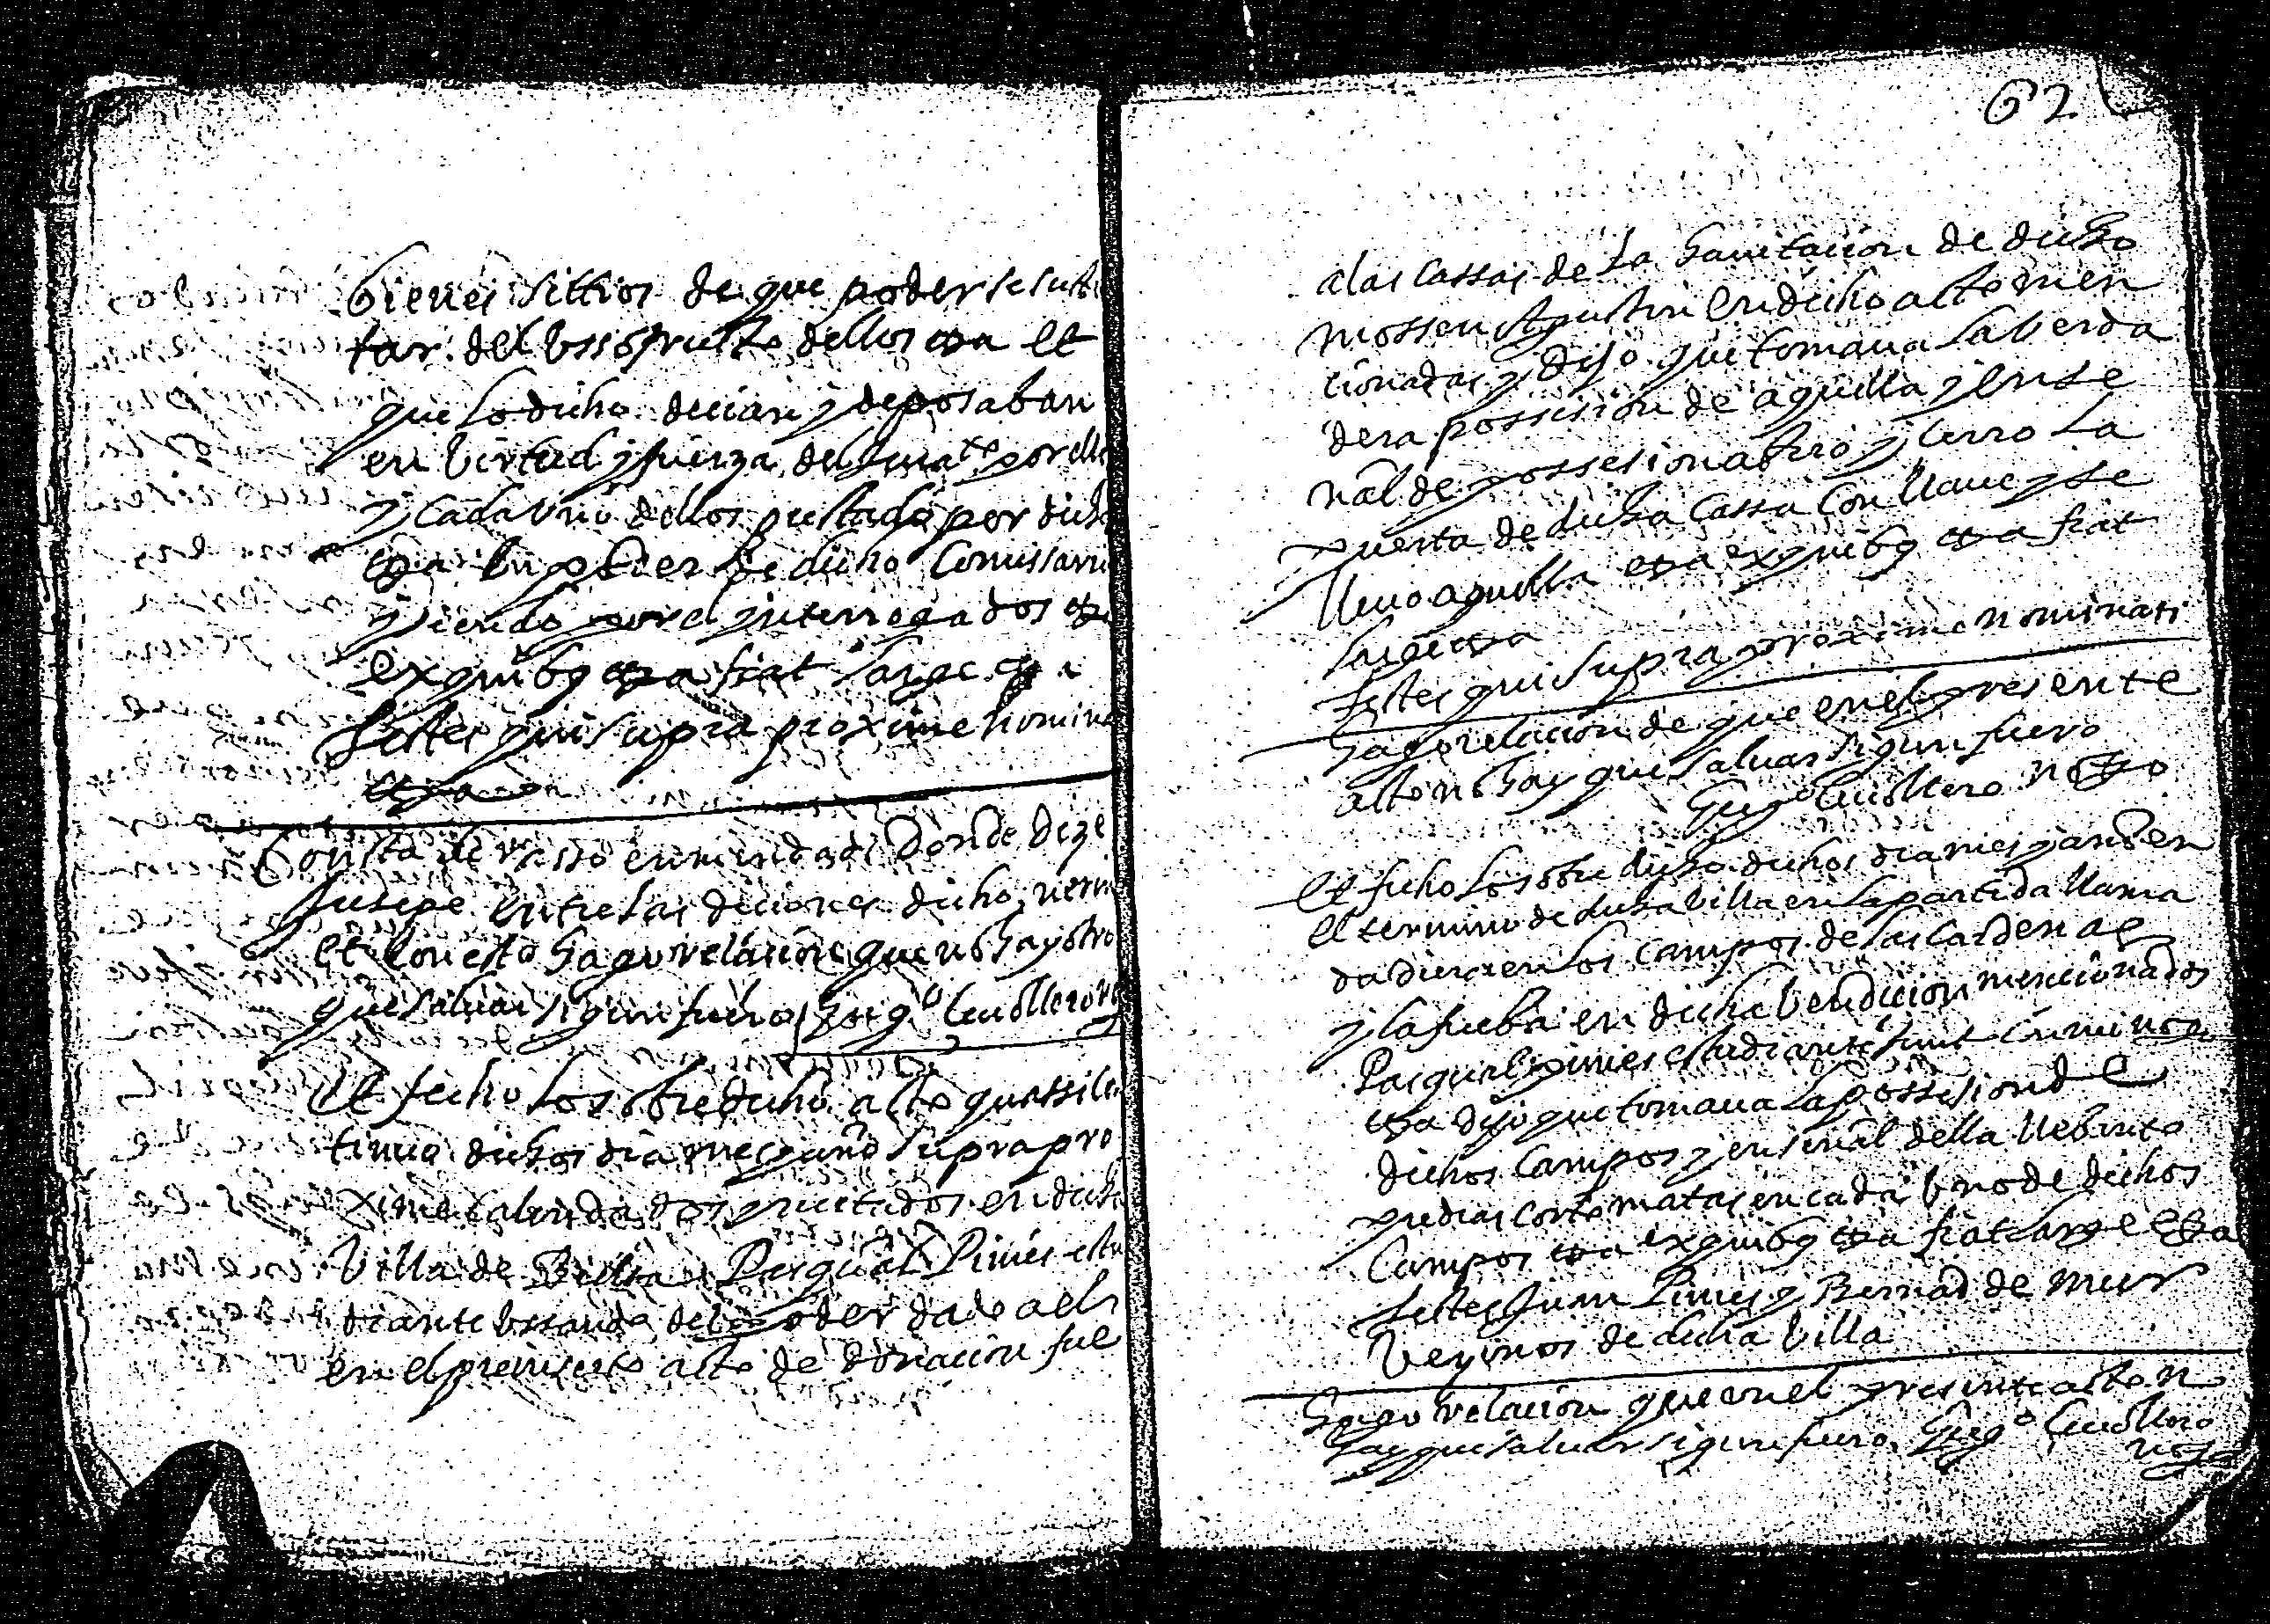 bienes sittios de que poder se suste
tar del vssofruito dellos etta et
que lo dicho decian y deposaban
en virtud y fuerza del jurato por ello
y cada vno dellos prestado por dicho
etta en poder de dicho Comissario
y siendo por el interrogados etta
exquibus etta fiat large etta
testes qui supra proxime nomina
etta
Consta de rasso enmendado donde dize
Jusepe entre las diciones dicho
et con esto hago relacion que no hay otro
que saluar sigun fuero Greg.o Cuollero
Et fecho lo sobredicho acto quassi con
tinuo dichos dia mes y año supra pro
xime calendados y recitados en dicha
villa de Pasqual Pinies estu
diante vssando del poder dado a el
en el preinserto acto de donacion fue
62
a las cassas de la hauitacion de dicho
mossen Agustin en dicho acto men
cionadas y dijo que tomaua la verda
dera possesion de aquella y en se
nal de possesion abrio y cerro la
puerta de dicha cassa con llaue y se
lleuo aquella etta exquibus etta fiat
large etta
testes qui supra proxime nominati
Hago relacion de que en el presente
acto no hay que saluar sigun fuero
Greg.o Cuollero not.o
Et fecho lo sobre dicho dichos dia mes y año en
el termino de dicha villa en la partida llama
da en los campos de las Cardenas
y la en dicha vendicion mencionados
Pasqual Pinies estudiante simul cum not.o
etta dijo que tomaua la possesion de
dichos campos y en señal della lleuanto
piedras corto matas en cada vno de dichos
campos etta exquibus etta fiat large etta
testes Juan Pinies y Bernad de Mur
vezinos de dicha villa
Hago relacion que en el presente acto n
hay que saluar sigun fuero Greg.o Cuollero
not.o